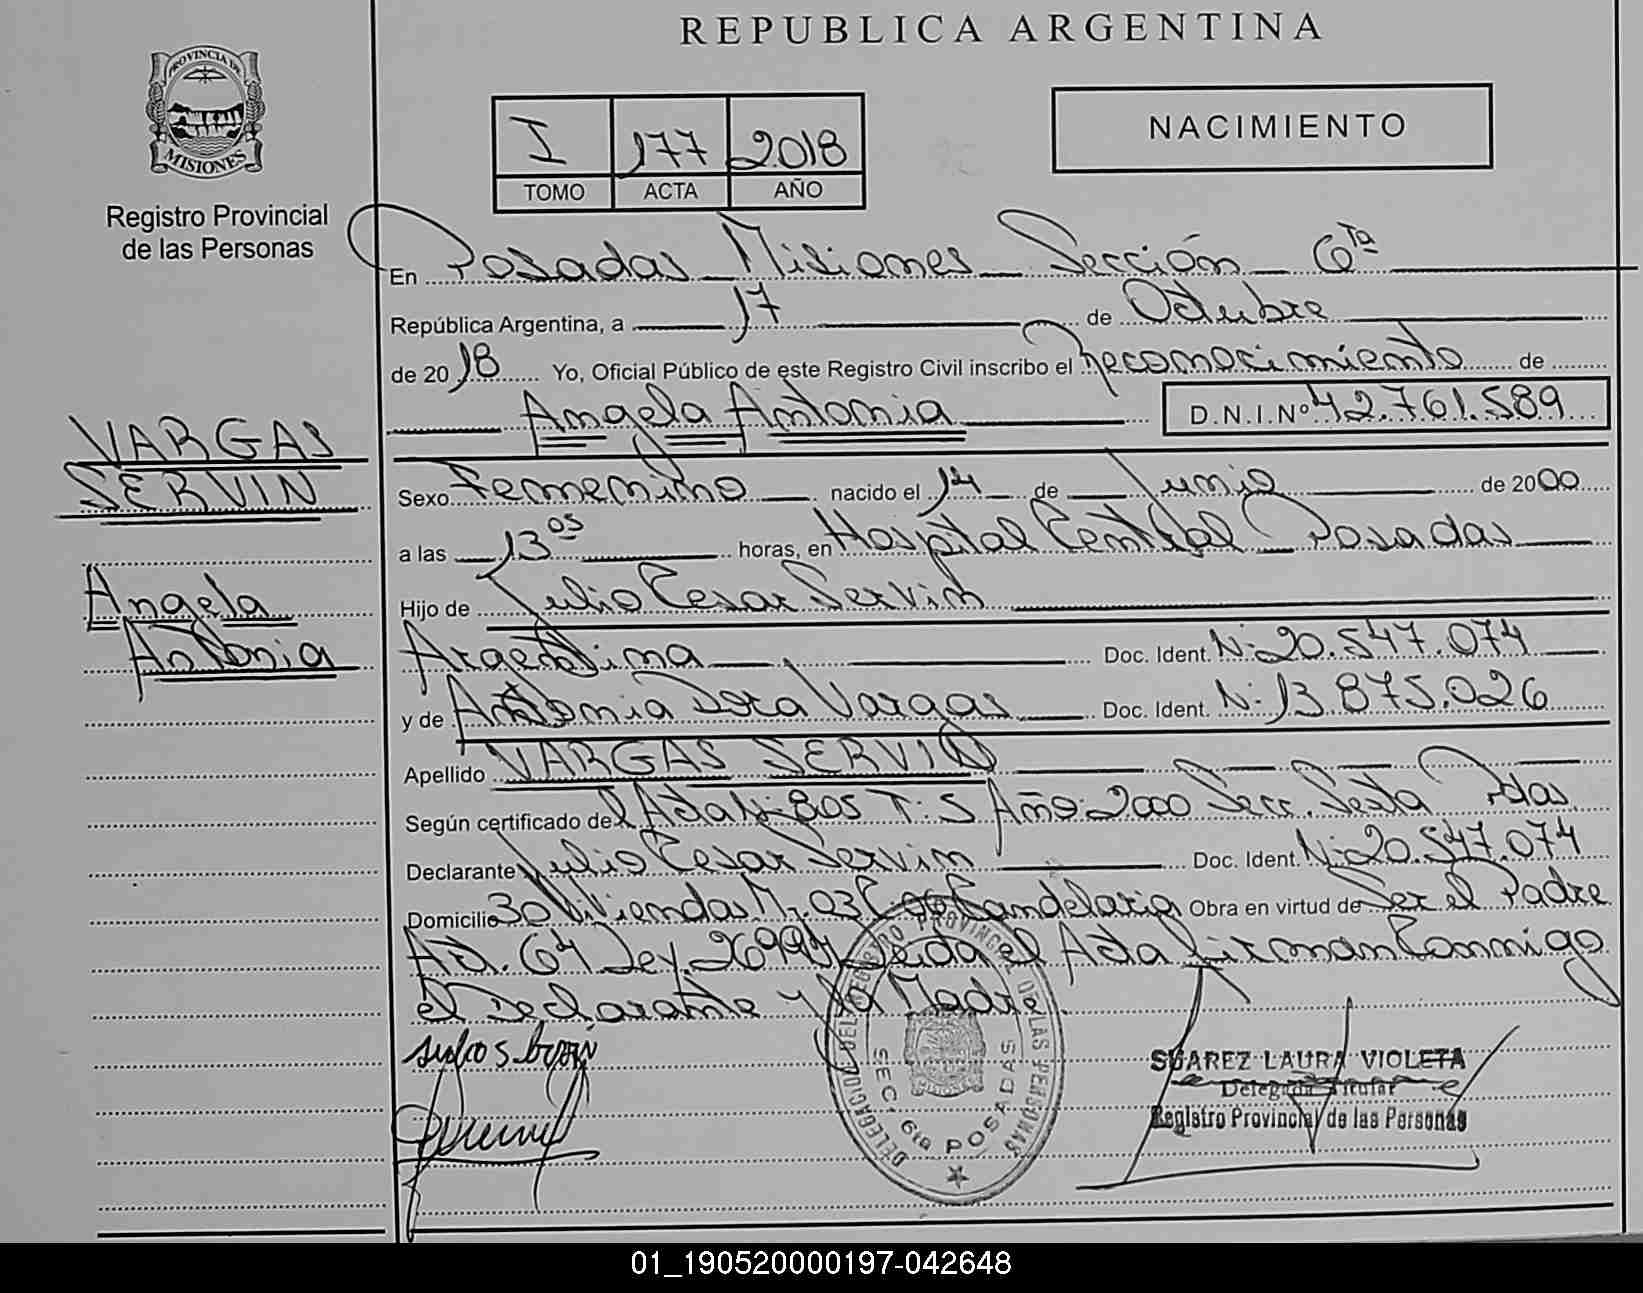 REPUBLICA ARGENTINA
PROVINCIA DE
MISIONES
Registro Provincial
de las Personas
I 177 2018
TOMO ACTA AÑO
NACIMIENTO
En Posadas Misiones Sección 6ta
República Argentina, a 17 de Octubre
de 2018 Yo, Oficial Público de este Registro Civil inscribo el Reconocimiento de
Angela Antonia D.N.I.Nº 42.761.589
VARGAS
SERVIN
Angela
Antonia
Sexo Femenino nacido el 14 de Junio de 2000
a las 13 05 horas, en Hospital Central Posadas
Hijo de Julio Cesar Servin
Argentina Doc. Ident. N: 20.547.074
y de Antonia Dora Vargas Doc. Ident. N: 13.875.026
Apellido VARGAS SERVIN
Según certificado del Acta N: 805 T: 5 Año: 2000 Secc. Sexta Pdas
Declarante Julio Cesar Servin Doc. Ident. N: 20.547.074
Domicilio 30 Viviendas M. 03 C. 90 Candelaria Obra en virtud de Ser el Padre
Art. 64 Ley. 26994 Leida el Acta firman Conmigo
el Declarante y la Madre
SUAREZ LAURA VIOLETA
Delegada Titular
Registro Provincial de las Personas
DELEGACION DEL REGISTRO PROVINCIAL DE LAS PERSONAS
SEC. 6ta POSADAS
01_190520000197-042648